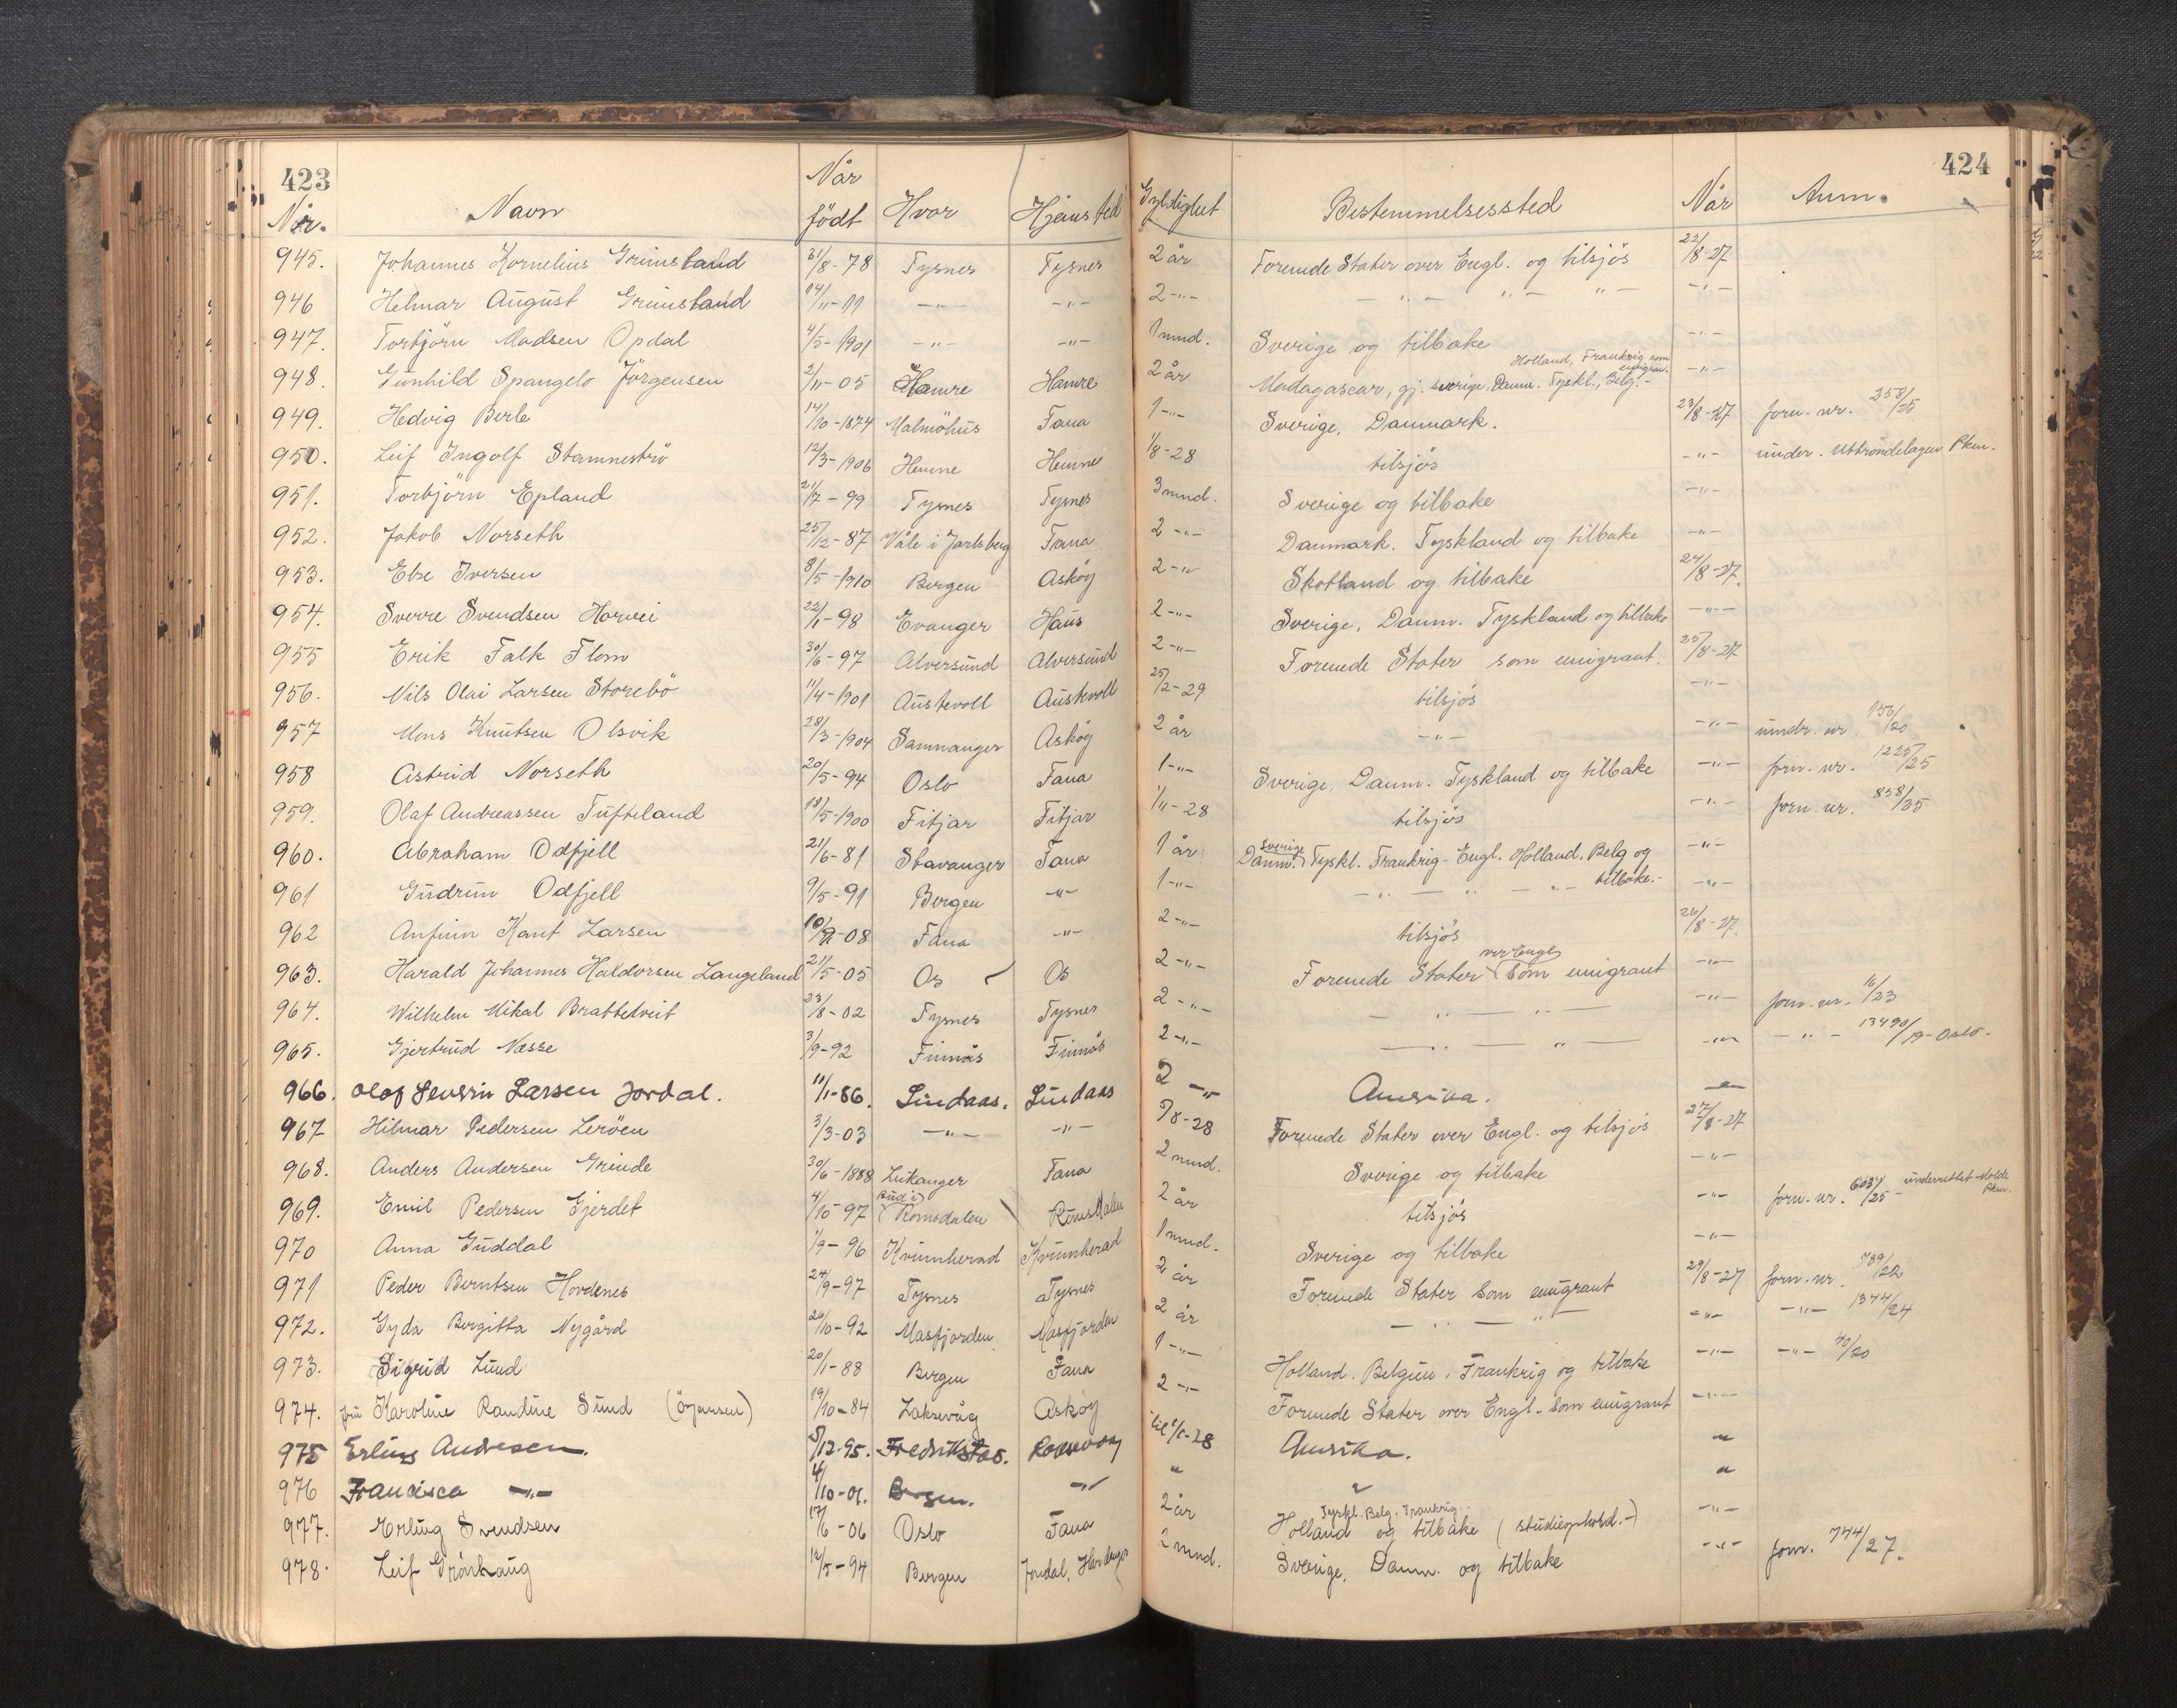 423 424
Nr. Navn Når født Hvor Hjemsted Gyldighet Bestemmelsessted Når Anm.
945. Johannes Kornelius Grimstand 31/8-78 Tysnes Tysnes 2 år Forenede Stater over Engl. og tilsjös 22/8-27
946 Helmar August Grimstand 14/11-11 -"- -"- 2 -"- "- "- "- -"-
947. Torbjörn Madsen Opdal 4/5-1901 -"- -"- 1 mnd. Sverige og tilbake -"-
948. Gunhild Spangelo Jörgensen 2/11-05 Hamre Hamre 2 år Madagascar, gj. sverige, Danm. Tyskl., Belg.- Holland, Frankrig som emigran. -"-
949. Hedvig Berle 14/10-1874 Malmöhus Fana 1 -"- Sverige, Danmark. 23/8-27 forn. nr. 258/25
950. Leif Ingolf Stamneströ 12/3-1906 Hemne Hemne 1/8-28 tilsjös -"- under. Uttröndelagen Pkm.
951. Torbjörn Epland 21/7-99 Tysnes Tysnes 3 mnd. Sverige og tilbake -"-
952. Jakob Norseth 25/12-87 Våle i Jarlsberg Fana 2 -"- Danmark. Tyskland og tilbake -"-
953. Else Iversen 8/5-1910 Bergen Asköy 2 -"- Skotland og tilbake 24/8-27.
954. Sverre Svendsen Horvei 22/1-98 Evanger Haus 2 -"- Sverige, Danm. Tyskland og tilbake -"-
955 Erik Falk Flom 30/6-97 Alversund Alversund 2 -"- Forenede Stater som emigrant. 25/8-27
956. Nils Olai Larsen Storebö 11/4-1901 Austevoll Austevoll 25/2-29 tilsjös -"-
957 Mons Knutsen Olsvik 28/3-1904 Samnanger Asköy 2 år -"- -"- undr. nr. 150/20
958 Astrid Norseth 20/5-94 Oslo Fana 1 -"- Sverige, Danm. Tyskland og tilbake -"- forn. nr. 1225/25
959. Olaf Andreassen Tufteland 18/5-1900 Fitjar Fitjar 1/11-28 tilsjös -"- forn. nr. 858/25
960. Abraham Odfjell 21/6-81 Stavanger Fana 1 år Danm. Sverige Tyskl. Frankrig- Engl. Holland. Belg og -"-
961 Gudrun Odfjell 9/5-91 Bergen -"- 1 -"- -"- -"- -"- tilbake.- -"-
962 Anfinn Kant Larsen -08 Fana -"- 2 -"- tilsjös 26/8-27.
963. Harald Johannes Haldorsen Langeland 21/5-05 Os Os 2 -"- Forenede Stater over Engl som emigrant -"-
964. Wilhelm Mikal Brattetveit 23/8-02 Tysnes Tysnes 2 -"- -"- -"- -"- forn. nr. 16/23
965. Gjertrud Næsse 3/9-92 Finnås Finnås 2 -"- -"- -"- -"- -"- 13490/19-Oslo.
966. Olaf Severin Larsen Jordal. 11/1-86. Lindaas. Lindaas 2 -"- Amerika. -"-
967 Hilmar Pedersen Leröen 3/3-03 -"- -"- 5/8-28 Forenede Stater over Engl. og tilsjös 27/8-27
968. Anders Andersen Grinde 30/6-1888 Leikanger Fana 2 mnd. Sverige og tilbake -"-
969. Emil Pedersen Gjerdet 4/10-97 Bud i Romsdalen Romsdalen 2 år tilsjös -"- forn. nr. 6037/25 - underrettet Molde Pkm.
970 Anna Guddal 1/9-96 Kvinnherad Kvinnherad 1 mnd. Sverige og tilbake -"-
971 Peder Berntsen Hovdenes 24/9-97 Tysnes Tysnes 2 år Forenede Stater som emigrant 29/8-27 forn. nr. 789/22
972. Gyda Birgitta Nygård 26/10-92 Masfjorden Masfjorden 2 år -"- -"- -"- -"- 1344/24
973. Sigrid Lund 20/1-88 Bergen Fana 1 -"- Holland. Belgien, Frankrig og tilbake -"- -"- 40/20
974. fru Karoline Randine Sund (Öyensen) 19/10-84 Laksevåg Asköy 2 -"- Forenede Stater over Engl- som emigrant -"-
975 Erling Andresen. 5/12-95. Fredrikstad. Laksevaag til 1/1-28 Amerika. "
976 Francisca -"- 4/10-01. Bergen. -"- " " "
977. Erling Svendsen 17/6-06 Oslo Fana 2 år Holland Tyskl. Belg. Frankrig. og tilbake (studieophold.-) -"-
978. Leif Grönhaug 12/5-94 Bergen Jondal, Hardanger 2 mnd. Sverige, Danm. og tilbake -"- forn. 744/27.